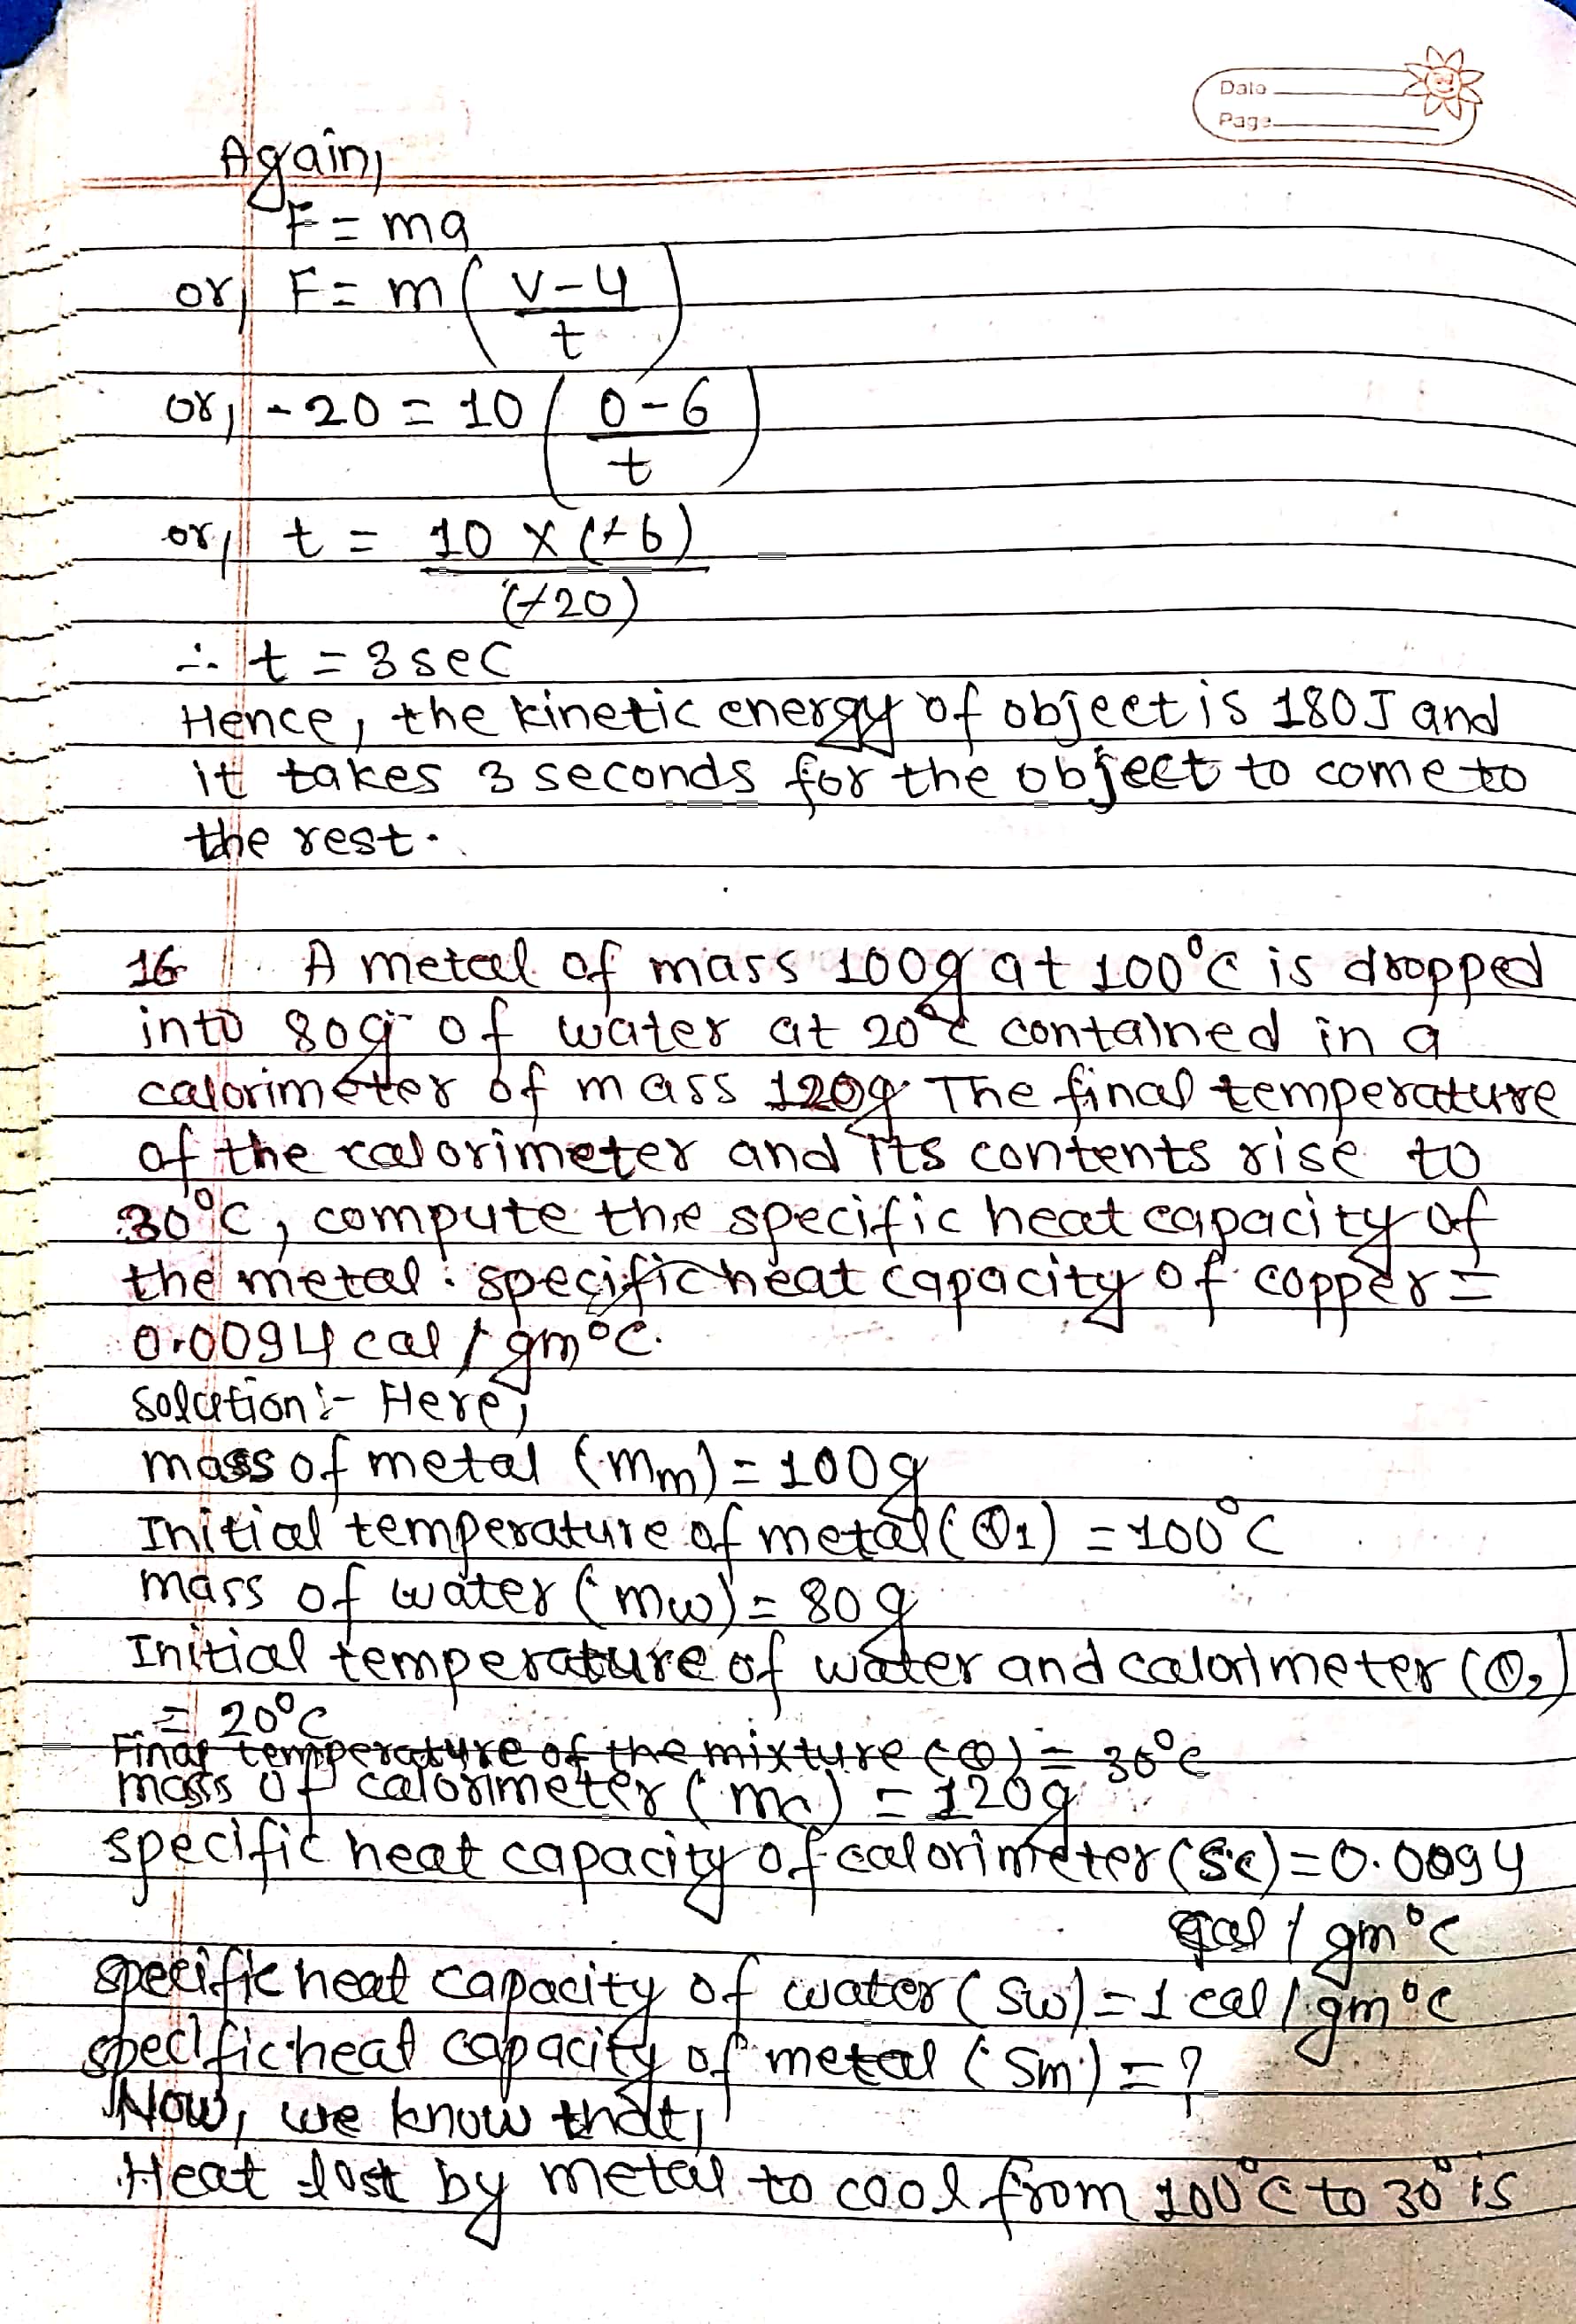 Date
Page
Again,
F = ma
or, F = m ( v-u / t )
or, -20 = 10 ( 0-6 / t )
or, t = 10 x (-6) / (-20)
∴ t = 3 sec
Hence, the kinetic energy of object is 180J and
it takes 3 seconds for the object to come to
the rest.
16 A metal of mass 100g at 100°C is dropped
into 80g of water at 20°C contained in a
calorimeter of mass 120g The final temperature
of the calorimeter and its contents rise to
30°C, compute the specific heat capacity of
the metal. specific heat capacity of copper =
0.0094 cal / gm°C.
solution:- Here,
mass of metal (mm) = 100g
Initial temperature of metal (θ1) = 100°C
mass of water (mw) = 80g
Initial temperature of water and calorimeter (θ2)
= 20°C
Final temperature of the mixture (θ) = 30°C
mass of calorimeter (mc) = 120g
specific heat capacity of calorimeter (Sc) = 0.0094
cal / gm°C
specific heat capacity of water (Sw) = 1 cal / gm°C
specific heat capacity of metal (Sm) = ?
Now, we know that,
Heat lost by metal to cool from 100°C to 30° is